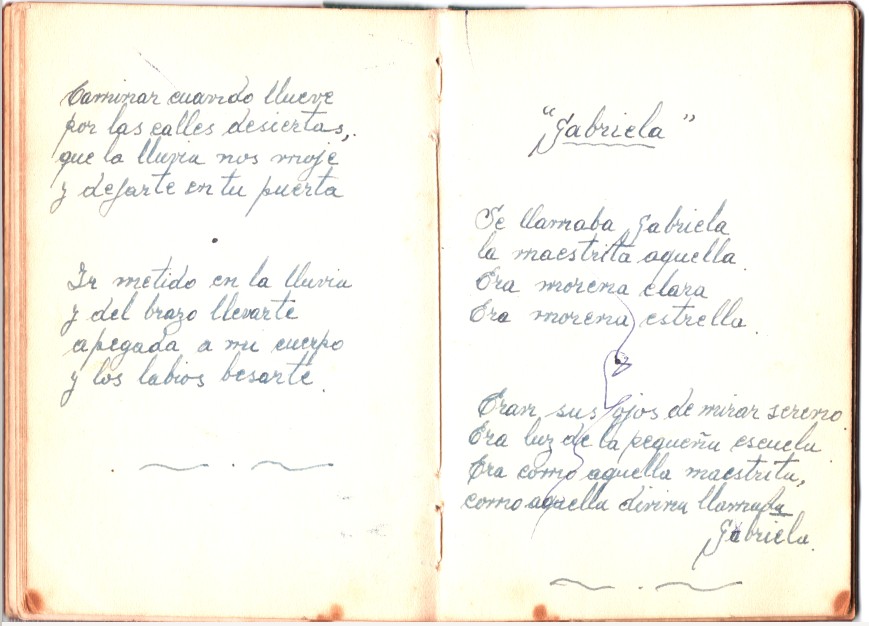 Caminar cuando llueve
por las calles desiertas,
que la lluvia nos moje
y dejarte en tu puerta
Ir metido en la lluvia
y del brazo llevarte
apegada a mi cuerpo
y los labios besarte.
"Gabriela"
Se llamaba Gabriela
la maestrita aquella.
Era morena clara
Era morena estrella.
Eran sus ojos de mirar sereno.
Era luz de la pequeña escuela
Era como aquella maestrita,
como aquella divina llamada
Gabriela.